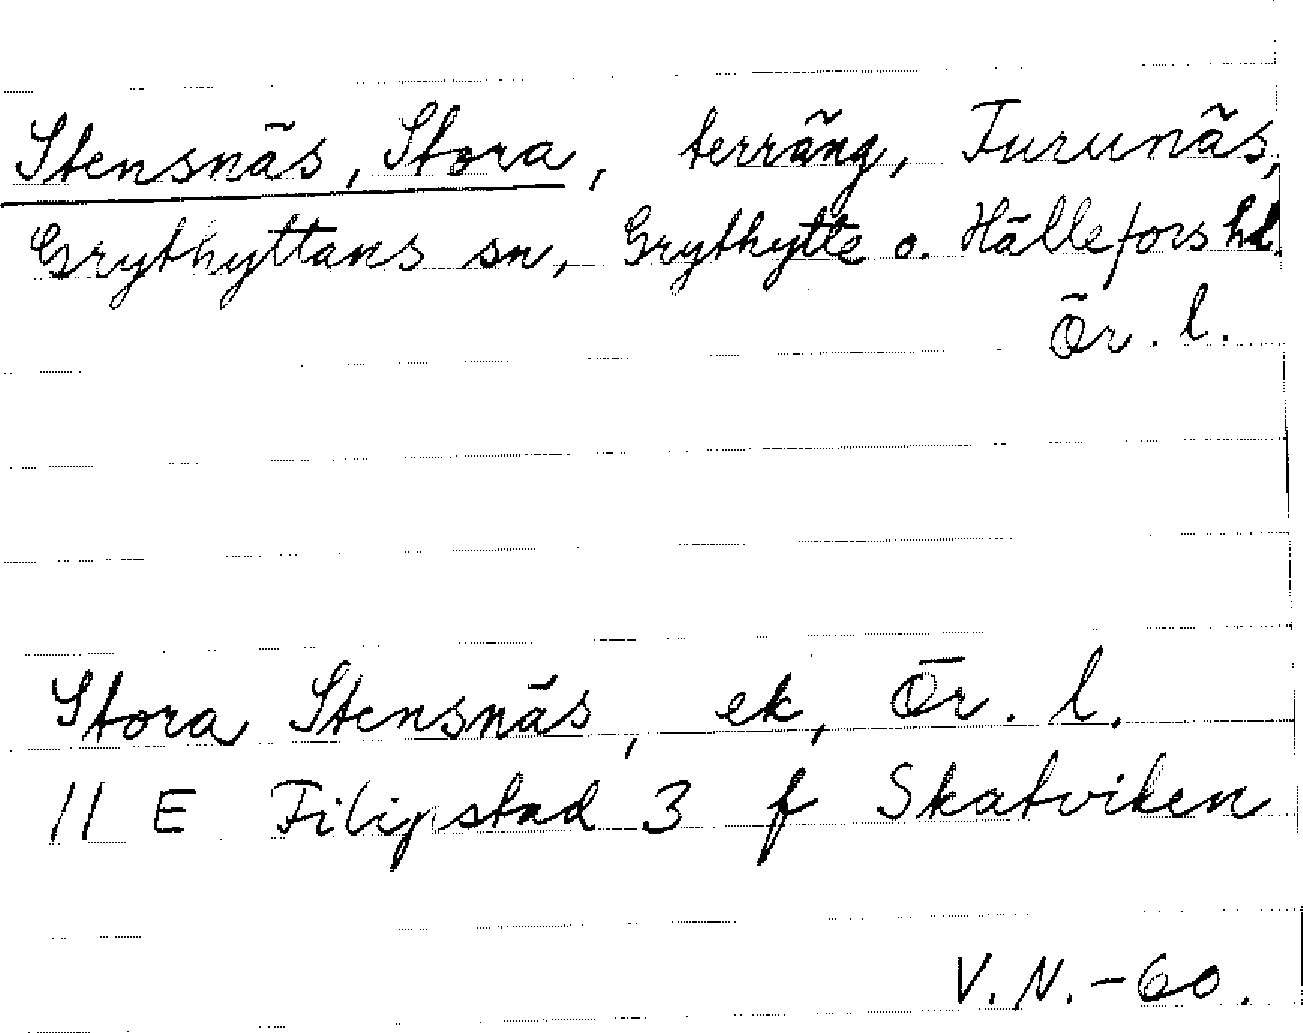 Stensnäs, Stora, terräng, Turunäs,
Grythyttans sn, Grythytte o. Hällefors hd.
Ör. l.
Stora Stensnäs, ek, Ör. l.
11 E Filipstad 3 f Skatviken
V. N. -60.